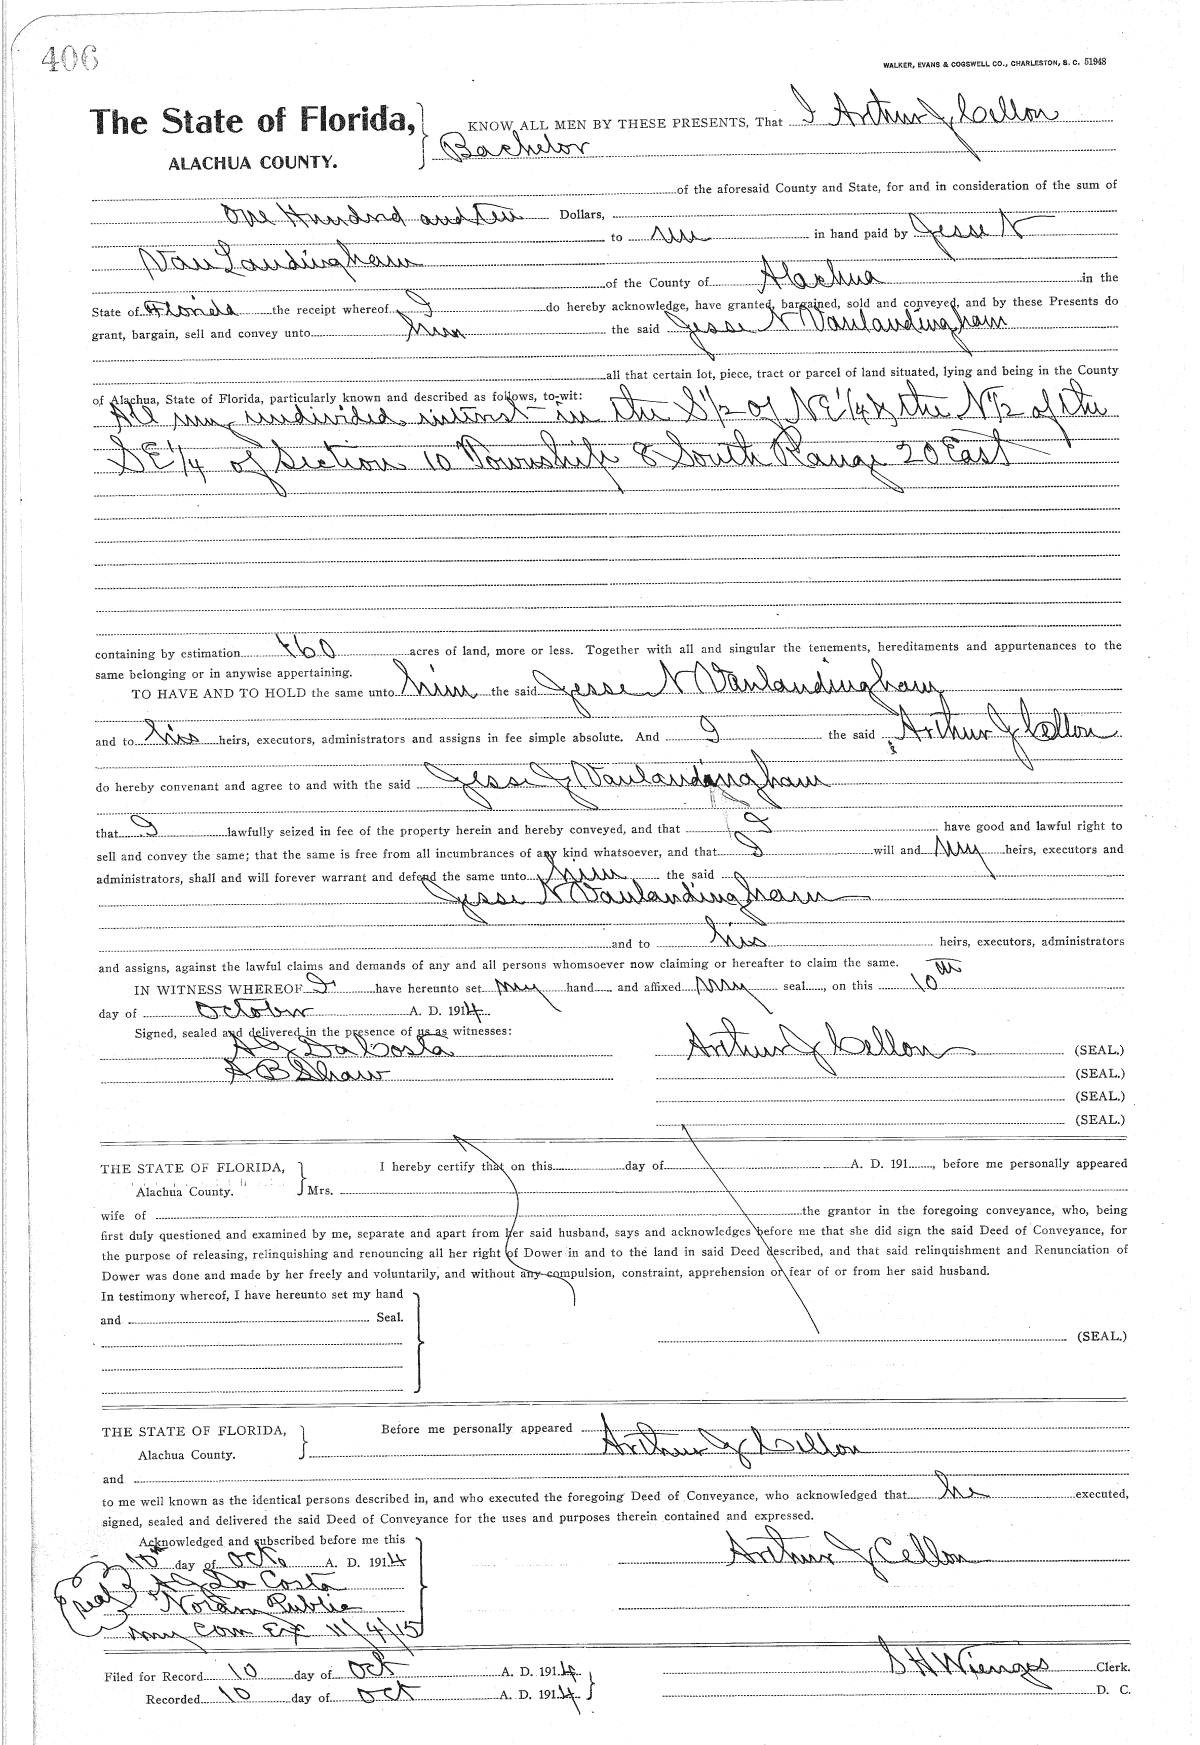 406
WALKER, EVANS & COGSWELL CO., CHARLESTON, S. C. 51948
The State of Florida,
ALACHUA COUNTY.
KNOW ALL MEN BY THESE PRESENTS, That I Arthur J Cellon
Bachelor
of the aforesaid County and State, for and in consideration of the sum of
One Hundred and Ten Dollars,
to me in hand paid by Jesse N
Van Landingham
of the County of Alachua in the
State of Florida the receipt whereof I do hereby acknowledge, have granted, bargained, sold and conveyed, and by these Presents do
grant, bargain, sell and convey unto him the said Jesse N Vanlandingham
all that certain lot, piece, tract or parcel of land situated, lying and being in the County
of Alachua, State of Florida, particularly known and described as follows, to-wit:
All my undivided interest in the S 1/2 of NE 1/4 & the N 1/2 of the
SE 1/4 of Section 10 Township 8 South Range 20 East
containing by estimation 160 acres of land, more or less. Together with all and singular the tenements, hereditaments and appurtenances to the
same belonging or in anywise appertaining.
TO HAVE AND TO HOLD the same unto him the said Jesse N Vanlandingham
and to his heirs, executors, administrators and assigns in fee simple absolute. And I the said Arthur J Cellon
do hereby convenant and agree to and with the said Jesse J Vanlandingham
that I lawfully seized in fee of the property herein and hereby conveyed, and that I have good and lawful right to
sell and convey the same; that the same is free from all incumbrances of any kind whatsoever, and that I will and my heirs, executors and
administrators, shall and will forever warrant and defend the same unto him the said
Jesse N Vanlandingham
and to his heirs, executors, administrators
and assigns, against the lawful claims and demands of any and all persons whomsoever now claiming or hereafter to claim the same.
IN WITNESS WHEREOF I have hereunto set my hand and affixed my seal, on this 10th
day of October A. D. 1914.
Signed, sealed and delivered in the presence of us as witnesses:
A G DaCosta
A B Shaw
Arthur J Cellon (SEAL.)
(SEAL.)
(SEAL.)
(SEAL.)
THE STATE OF FLORIDA,
Alachua County.
I hereby certify that on this day of A. D. 191, before me personally appeared
Mrs.
wife of the grantor in the foregoing conveyance, who, being
first duly questioned and examined by me, separate and apart from her said husband, says and acknowledges before me that she did sign the said Deed of Conveyance, for
the purpose of releasing, relinquishing and renouncing all her right of Dower in and to the land in said Deed described, and that said relinquishment and Renunciation of
Dower was done and made by her freely and voluntarily, and without any compulsion, constraint, apprehension or fear of or from her said husband.
In testimony whereof, I have hereunto set my hand
and Seal.
(SEAL.)
THE STATE OF FLORIDA,
Alachua County.
Before me personally appeared
Arthur J Cellon
and
to me well known as the identical persons described in, and who executed the foregoing Deed of Conveyance, who acknowledged that he executed,
signed, sealed and delivered the said Deed of Conveyance for the uses and purposes therein contained and expressed.
Acknowledged and subscribed before me this
10th day of Octo A. D. 1914
Arthur J Cellon
A G Da Costa
(seal)
Notary Public
my Com Ex 11/4/15
Filed for Record 10 day of Oct A. D. 1914.
S H Wienges Clerk.
Recorded 10 day of Oct A. D. 1914.
D. C.